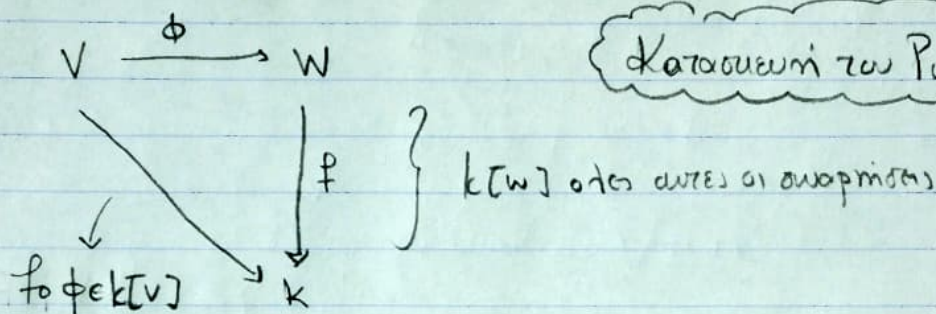 V ϕ W
Κατασκευή του
f
k[W] ολες αυτες οι συναρτησεις
f∘ϕ∈k[V] k